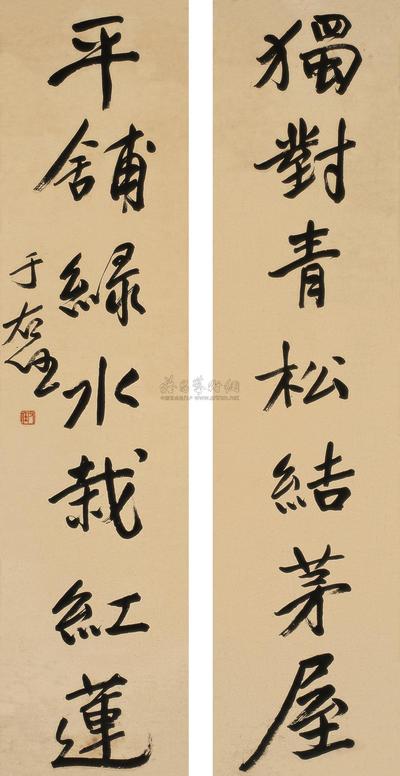 獨對青松結茅屋
平舖綠水栽紅蓮
于右任